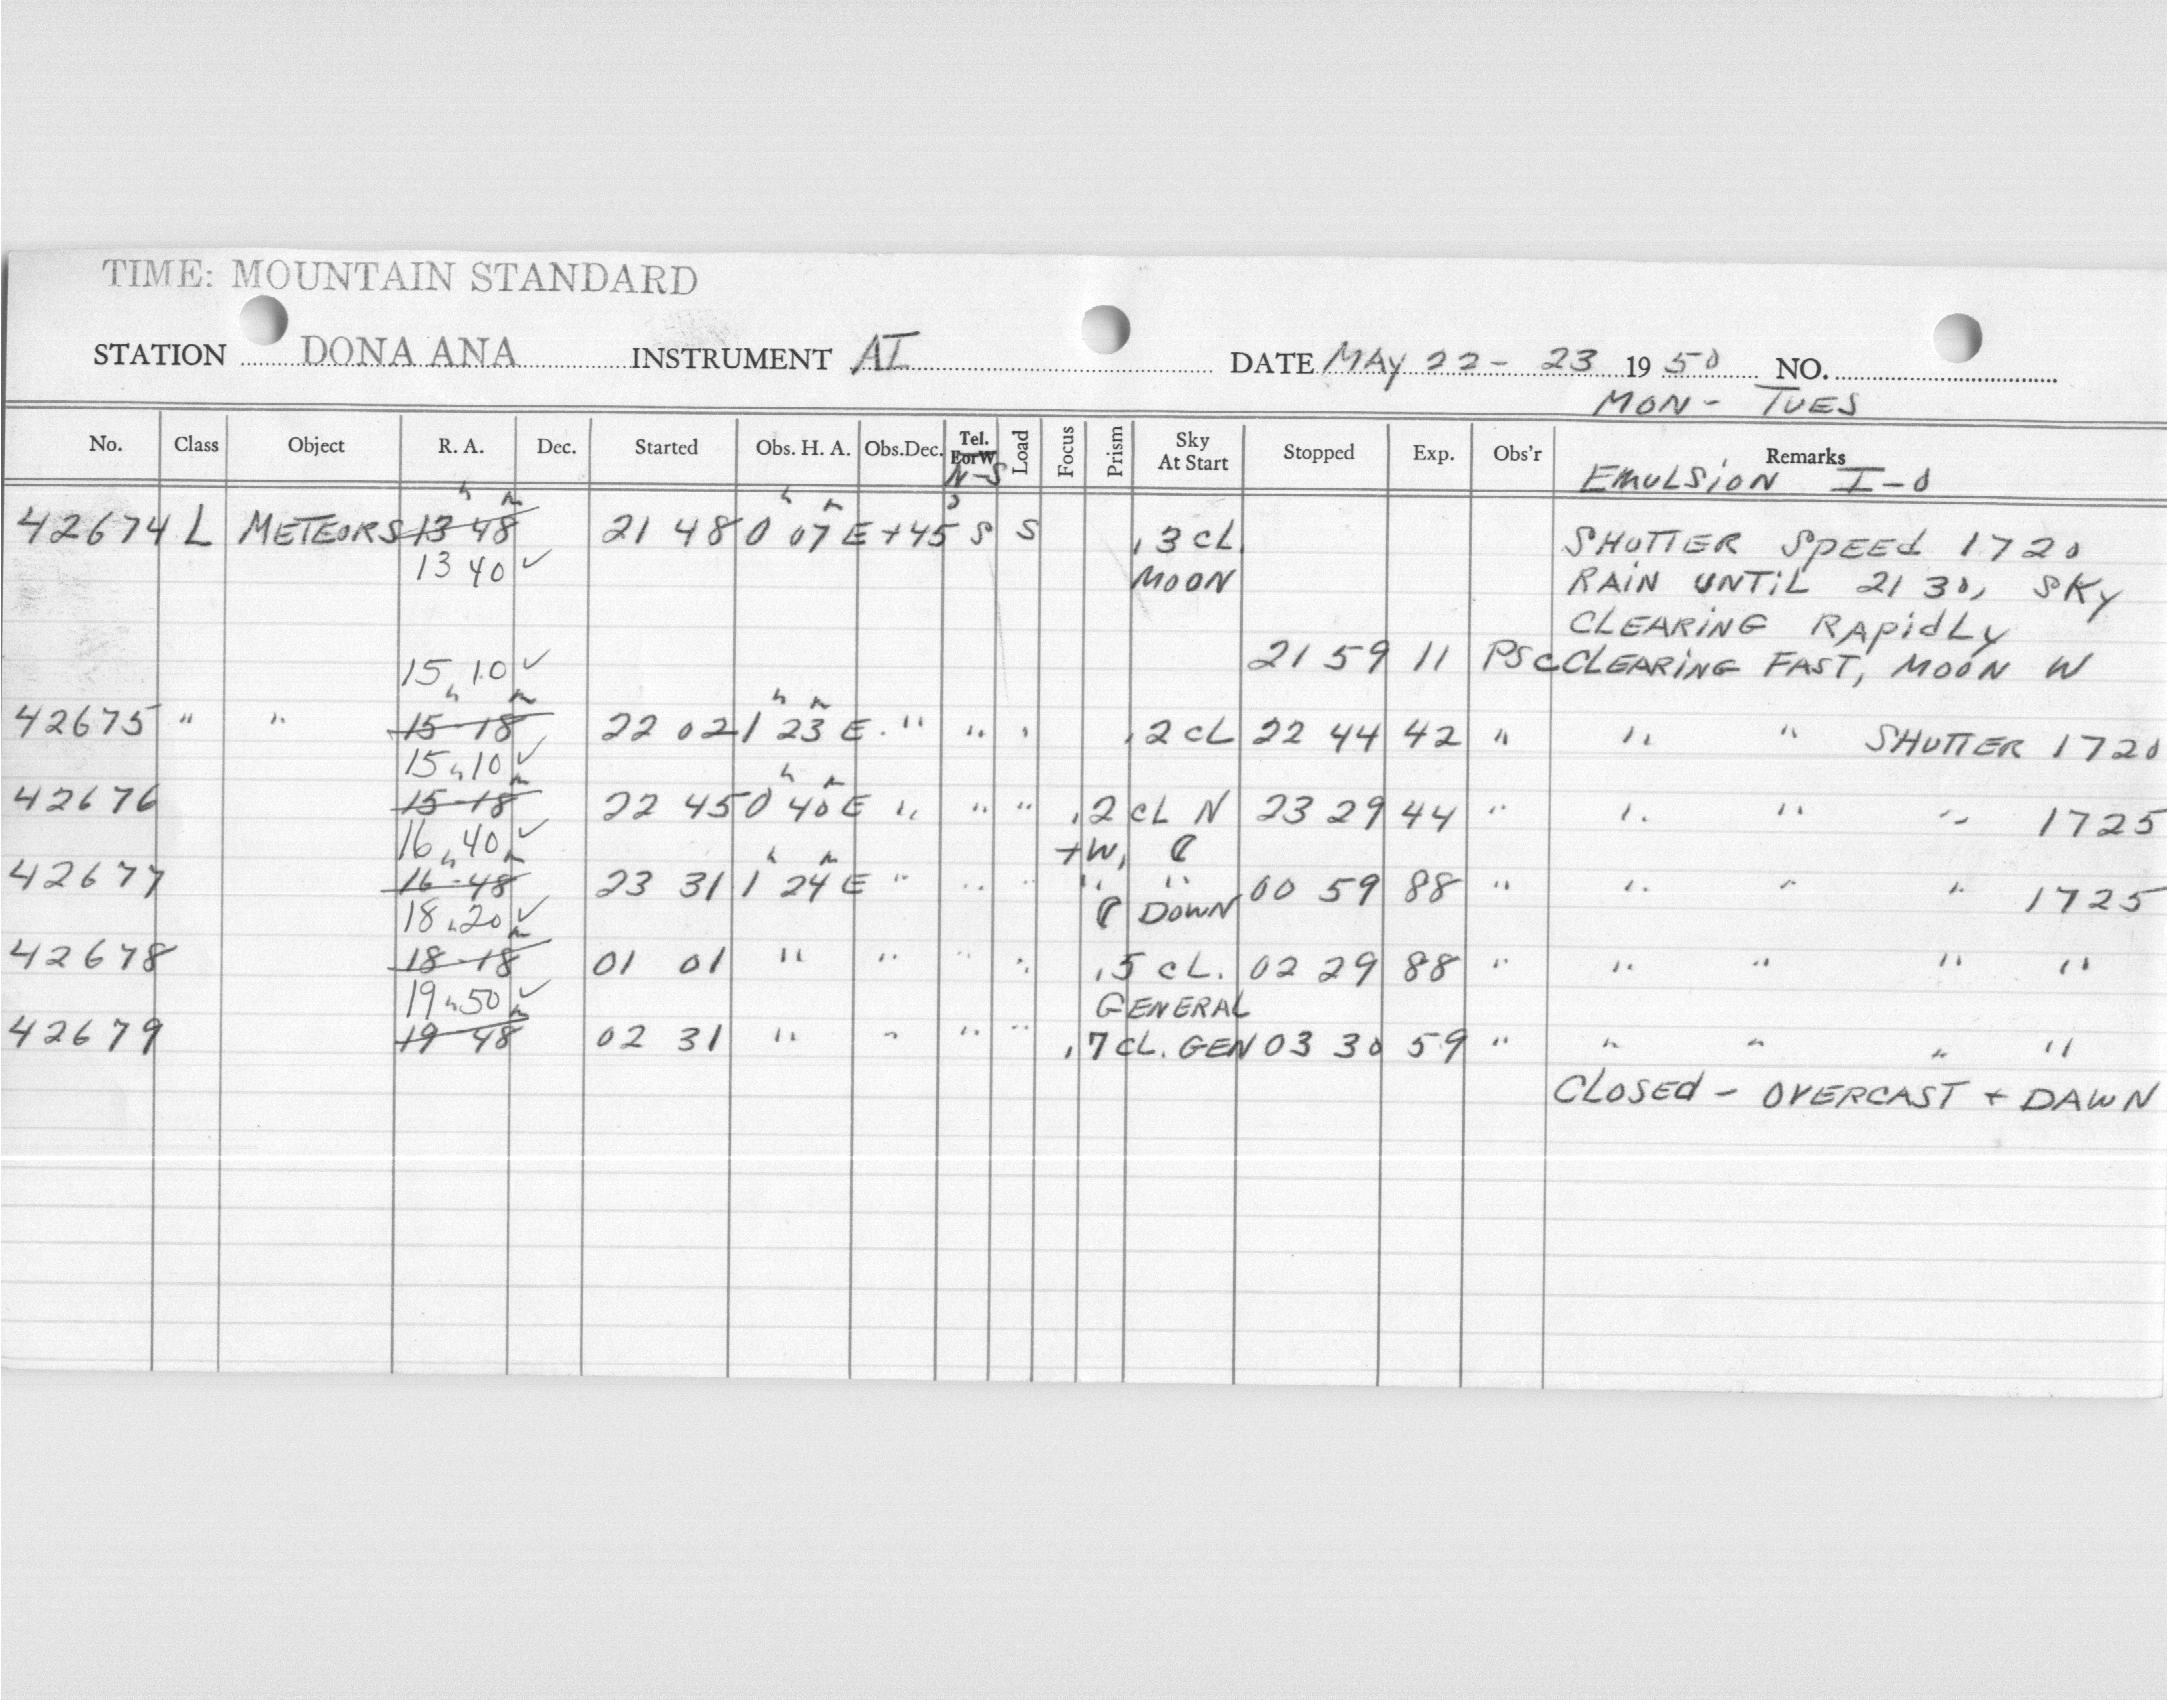 TIME: MOUNTAIN STANDARD
STATION DONA ANA INSTRUMENT AI DATE MAY 22 - 23 19 50 NO.
MON - TUES
No. Class Object R. A. Dec. Started Obs. H. A. Obs. Dec. Tel. EorW N-S Load Focus Prism Sky At Start Stopped Exp. Obs'r Remarks
EMULSION I-0
h m h m o
42674 L METEORS 13 48 21 48 0 07 E +45 S S .3 CL. SHUTTER SPEED 1720
13 40 ✓ MOON RAIN UNTIL 21 30, SKY
CLEARING RAPIDLY
15 10 ✓ 21 59 11 PSC CLEARING FAST, MOON W
h m h m
42675 " " 15 - 18 22 02 1 23 E " " " .2 CL 22 44 42 " " " SHUTTER 1720
15 h 10 m ✓ h m
42676 15 - 18 22 45 0 40 E " " " .2 CL N 23 29 44 " " " " 1725
16 h 40 m ✓ h m +W, ☾
42677 16 - 48 23 31 1 24 E " " " " " 00 59 88 " " " " 1725
18 h 20 m ✓ ☾ DOWN
42678 18 - 18 01 01 " " " " .5 CL. 02 29 88 " " " " "
19 h 50 m ✓ GENERAL
42679 19 - 48 02 31 " " " " .7 CL. GEN 03 30 59 " " " " "
CLOSED - OVERCAST + DAWN